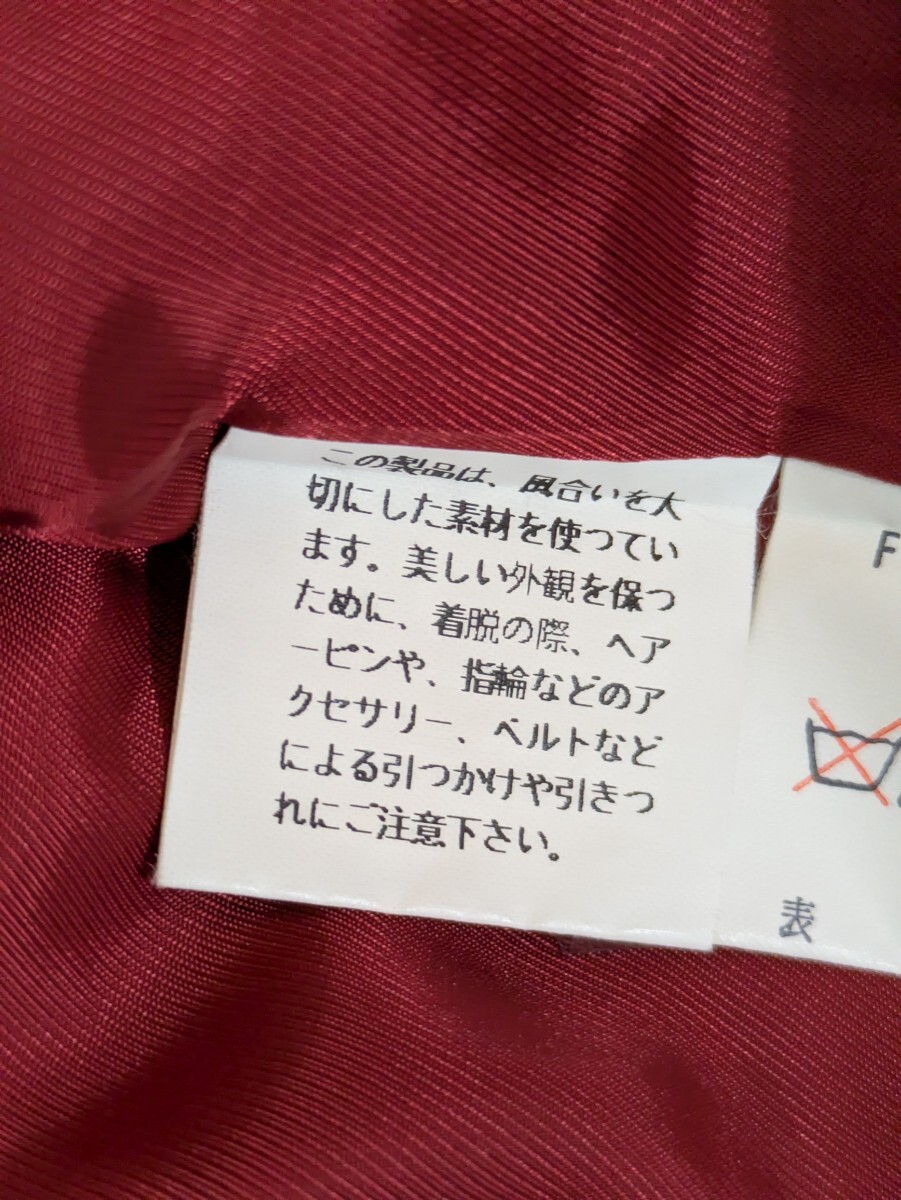 この製品は、風合いを大
切にした素材を使つてい
ます。美しい外観を保つ
ために、着脱の際、ヘア
ーピンや、指輪などのア
クセサリー、ベルトなど
による引つかけや引きつ
れにご注意下さい。
F
表